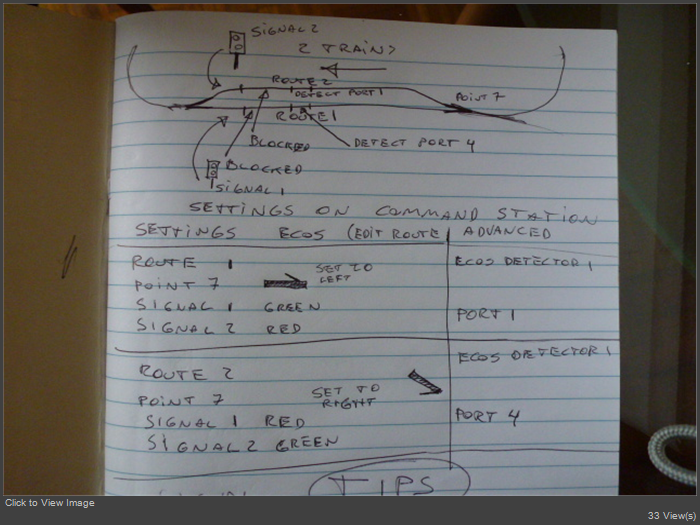 SIGNAL 2
2 TRAINS
ROUTE 2
DETECT PORT 1
POINT 7
ROUTE 1
BLOCKED
DETECT PORT 4
BLOCKED
SIGNAL 1
SETTINGS ON COMMAND STATION
SETTINGS ECOS (EDIT ROUTE ADVANCED
ROUTE 1 SET TO ECOS DETECTOR 1
POINT 7 LEFT
SIGNAL 1 GREEN PORT 1
SIGNAL 2 RED
ECOS DETECTOR 1
ROUTE 2 SET TO
POINT 7 RIGHT PORT 4
SIGNAL 1 RED
SIGNAL 2 GREEN
TIPS
Click to View Image
33 View(s)